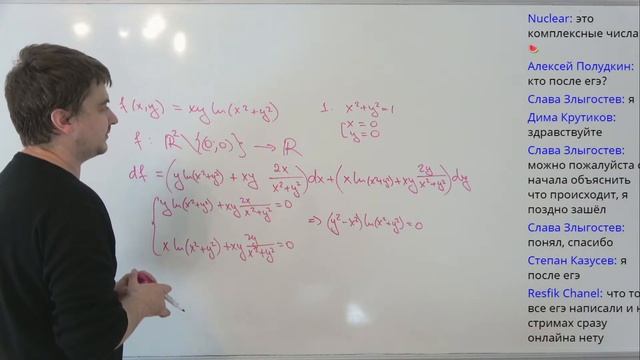 f(x,y) = xy ln(x²+y²)
f: ℝ²\{(0,0)} → ℝ
df = (y ln(x²+y²) + xy 2x/(x²+y²))dx + (x ln(x²+y²) + xy 2y/(x²+y²))dy
{ y ln(x²+y²) + xy 2x/(x²+y²) = 0
x ln(x²+y²) + xy 2y/(x²+y²) = 0
⇒ (y²-x²) ln(x²+y²) = 0
1. x²+y²=1
[ x = 0
y = 0
Nuclear: это
комплексные числа
🍉
Алексей Полудкин:
кто после егэ?
Слава Злыгостев: я
Дима Крутиков:
здравствуйте
Слава Злыгостев:
можно пожалуйста с
начала объяснить
что происходит, я
поздно зашёл
Слава Злыгостев:
понял, спасибо
Степан Казусев: я
после егэ
Resfik Chanel: что то
все егэ написали и н
стримах сразу
онлайна нету